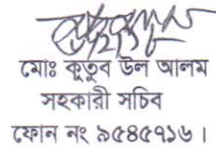 মোঃ কুতুব উল আলম
সহকারী সচিব
ফোন নং ৯৫৪৫৭১৬।